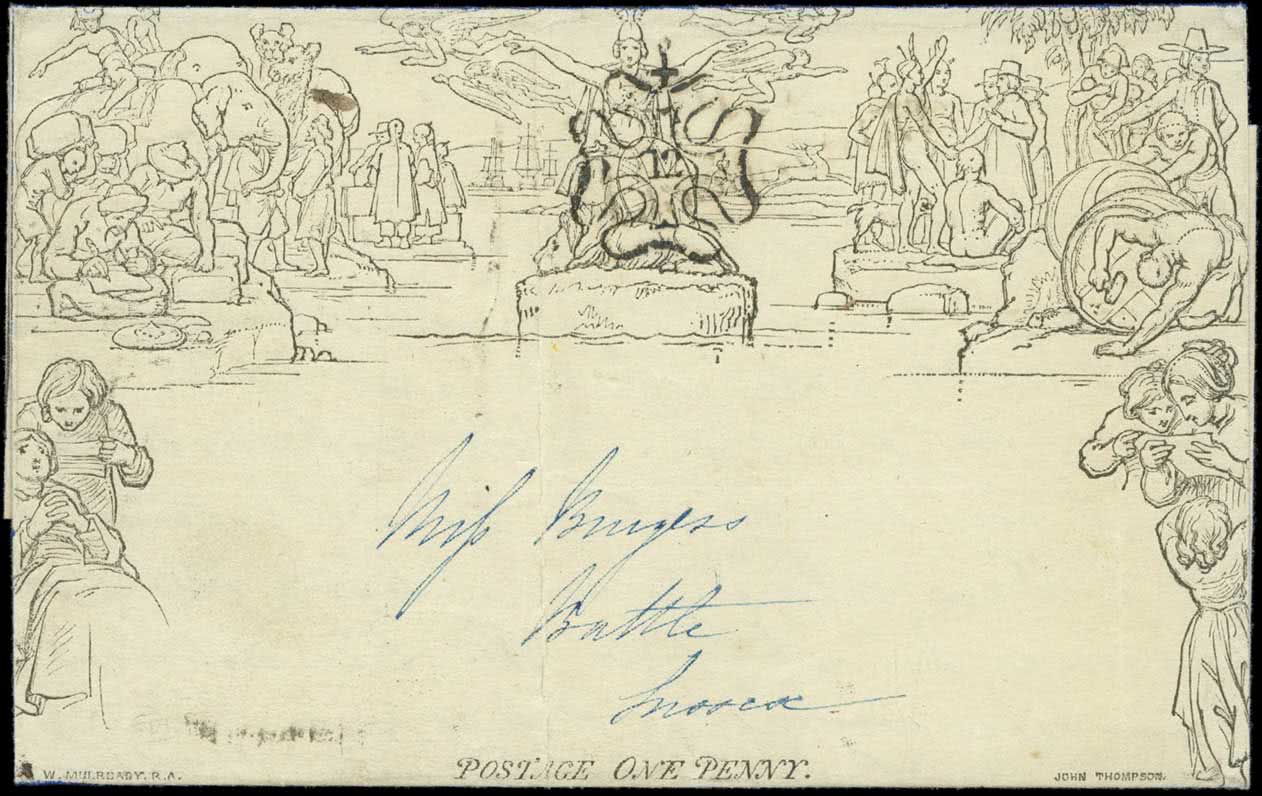 12
Miss Burgess
Battle
Sussex
W. MULREADY. R.A.
POSTAGE ONE PENNY.
JOHN THOMPSON.